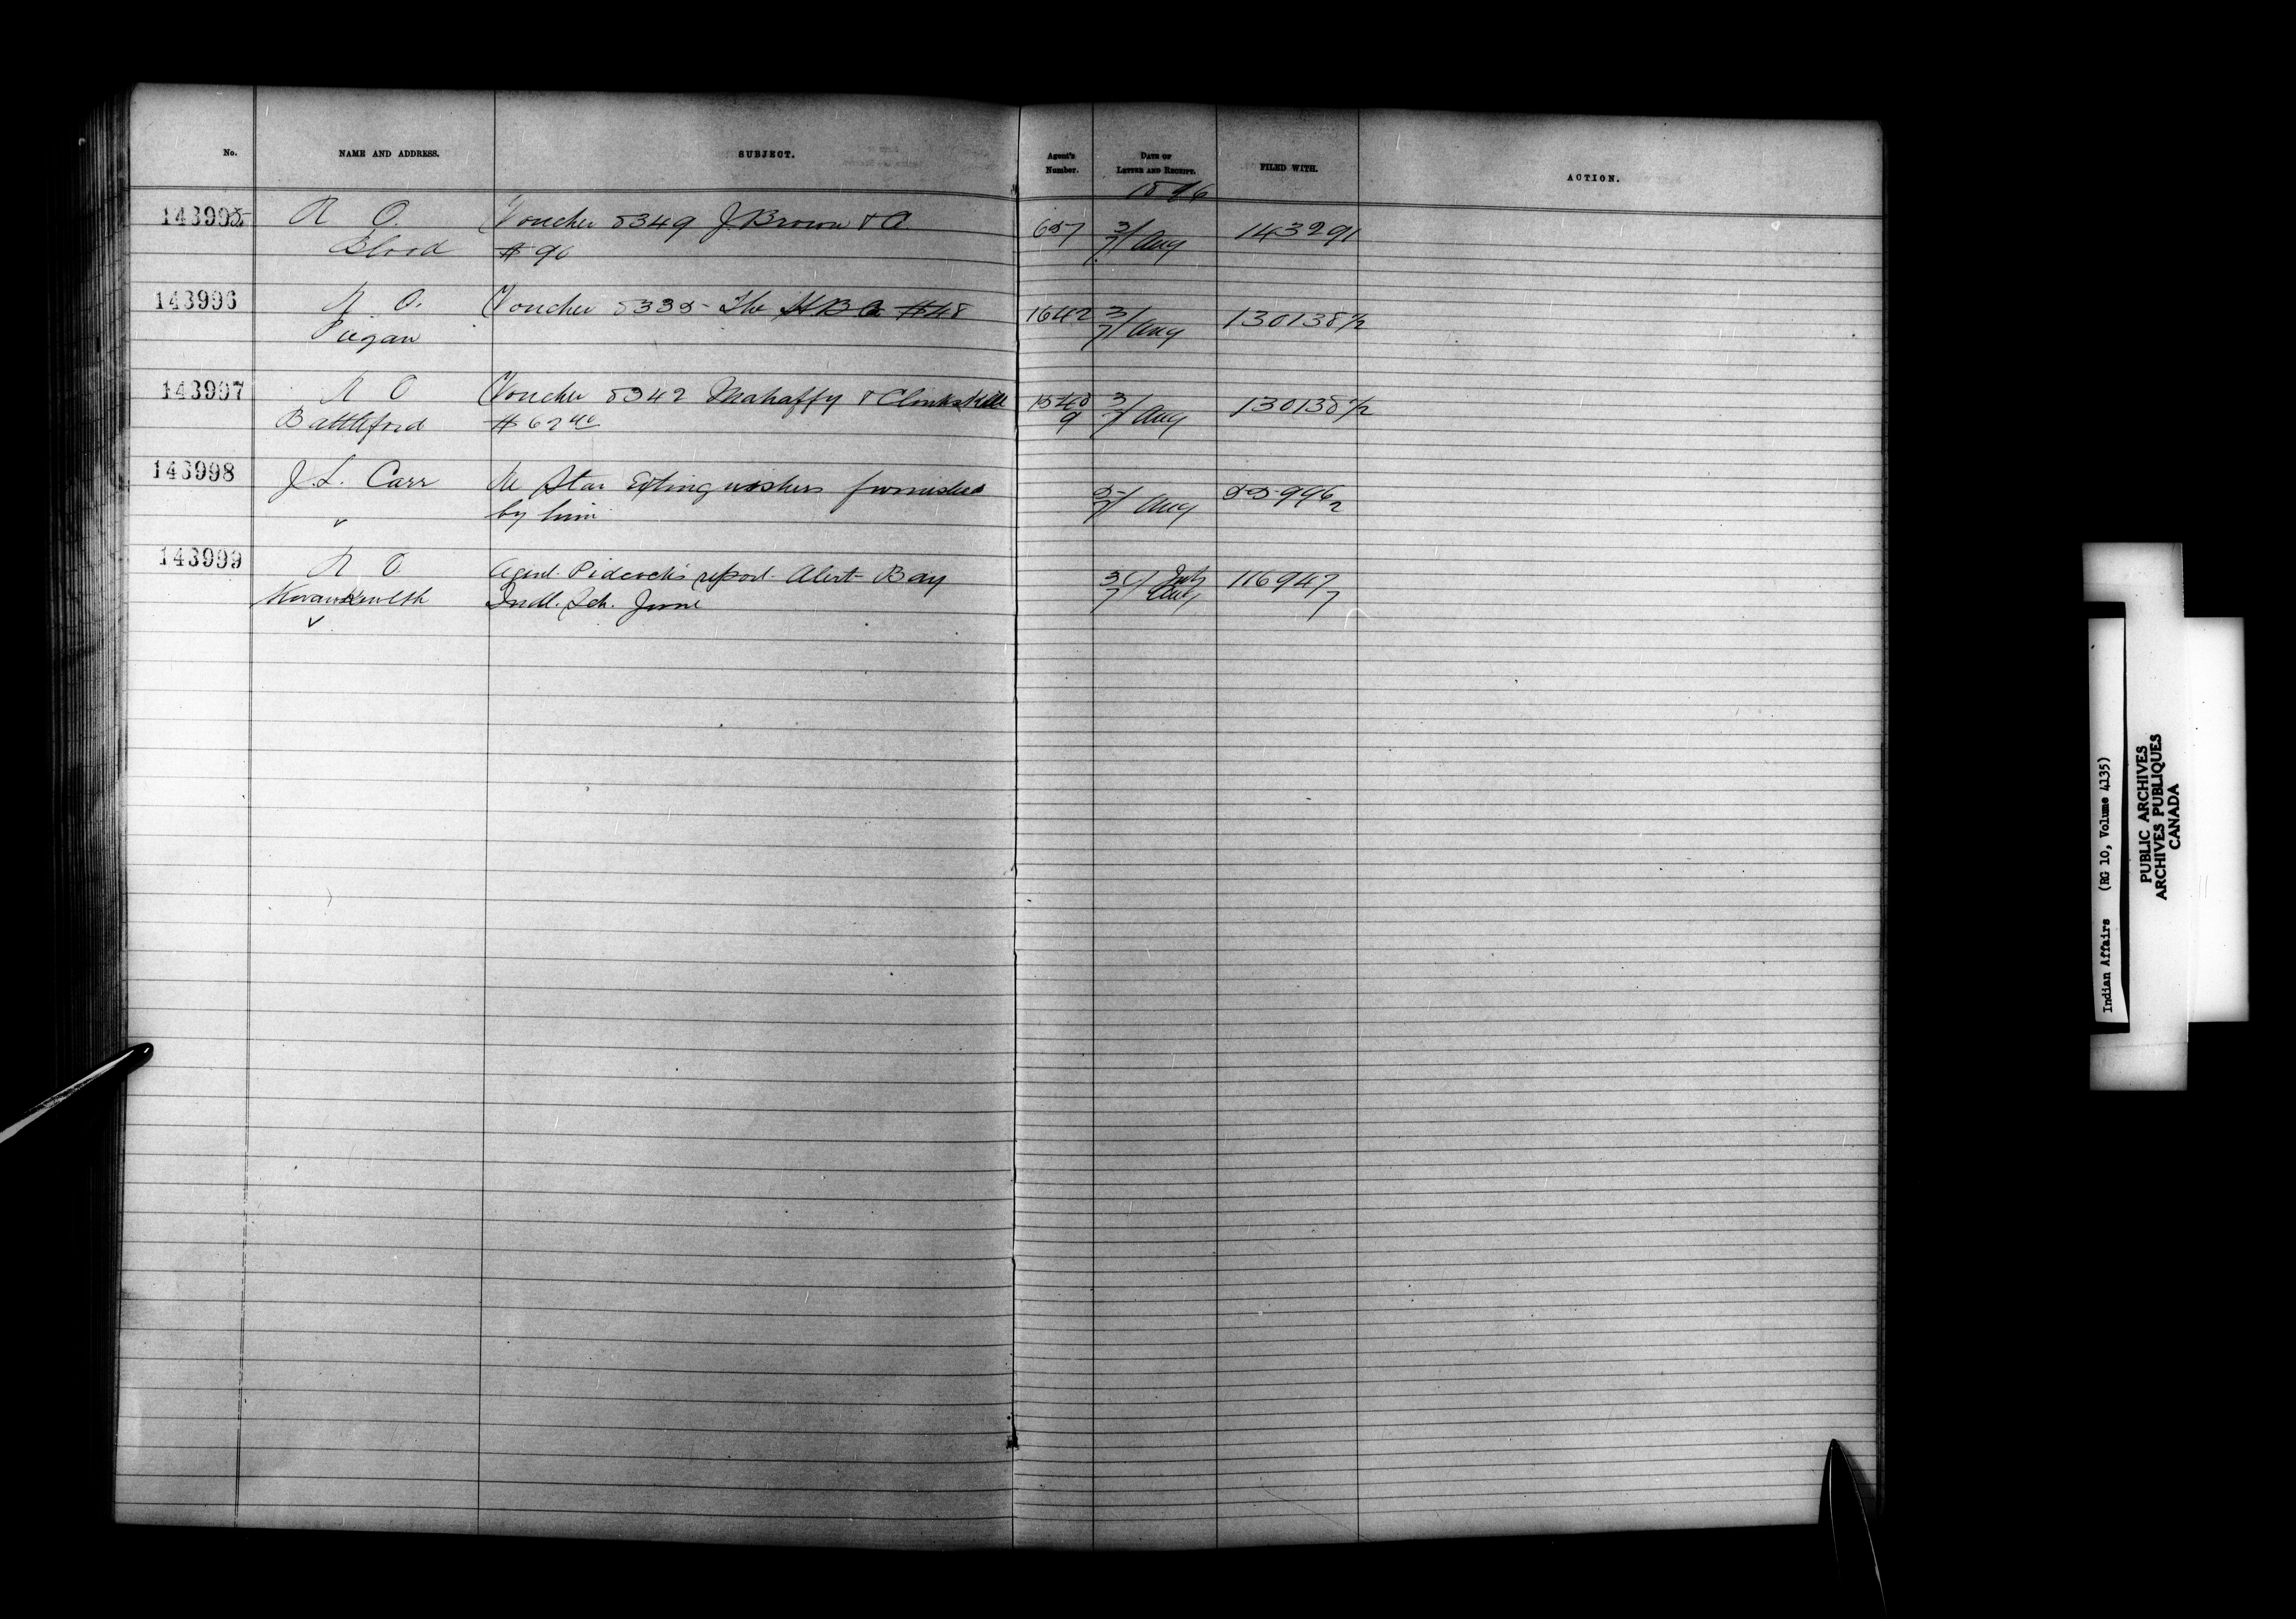 No. NAME AND ADDRESS. SUBJECT. Agent's Number. DATE OF LETTER AND RECEIPT. FILED WITH. ACTION.
1896
143995 R O. Voucher 8349 J. Brown & Co. 657 3/7 Aug 143291
Blood $90
143996 R O. Voucher 8335 The H B Co $48 1642 3/7 Aug 130138 1/2
Piegan
143997 R O Voucher 8342 Mahaffy & Clinkskill 3/7 Aug 130138 1/2
Battleford $62
143998 J. L. Carr Re Star Extinguishers furnished 5/7 Aug 55996 2
by him
143999 R O. Agent Pidcock's report Alert Bay July 116947 7
Kwawkewlth Indl. Sch. June Aug
Indian Affairs (RG 10, Volume 4135)
PUBLIC ARCHIVES
ARCHIVES PUBLIQUES
CANADA